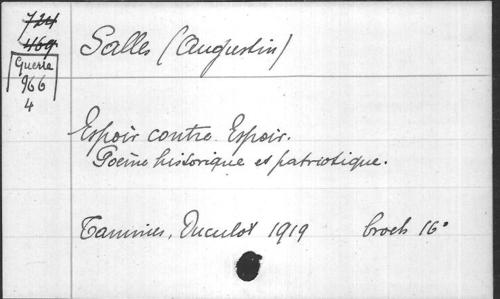 724
469
Guerre
966
4
Salles (Augustin)
Espoir contre Espoir.
Poème historique et patriotique.
Tamines, Duculot 1919 broch 16°